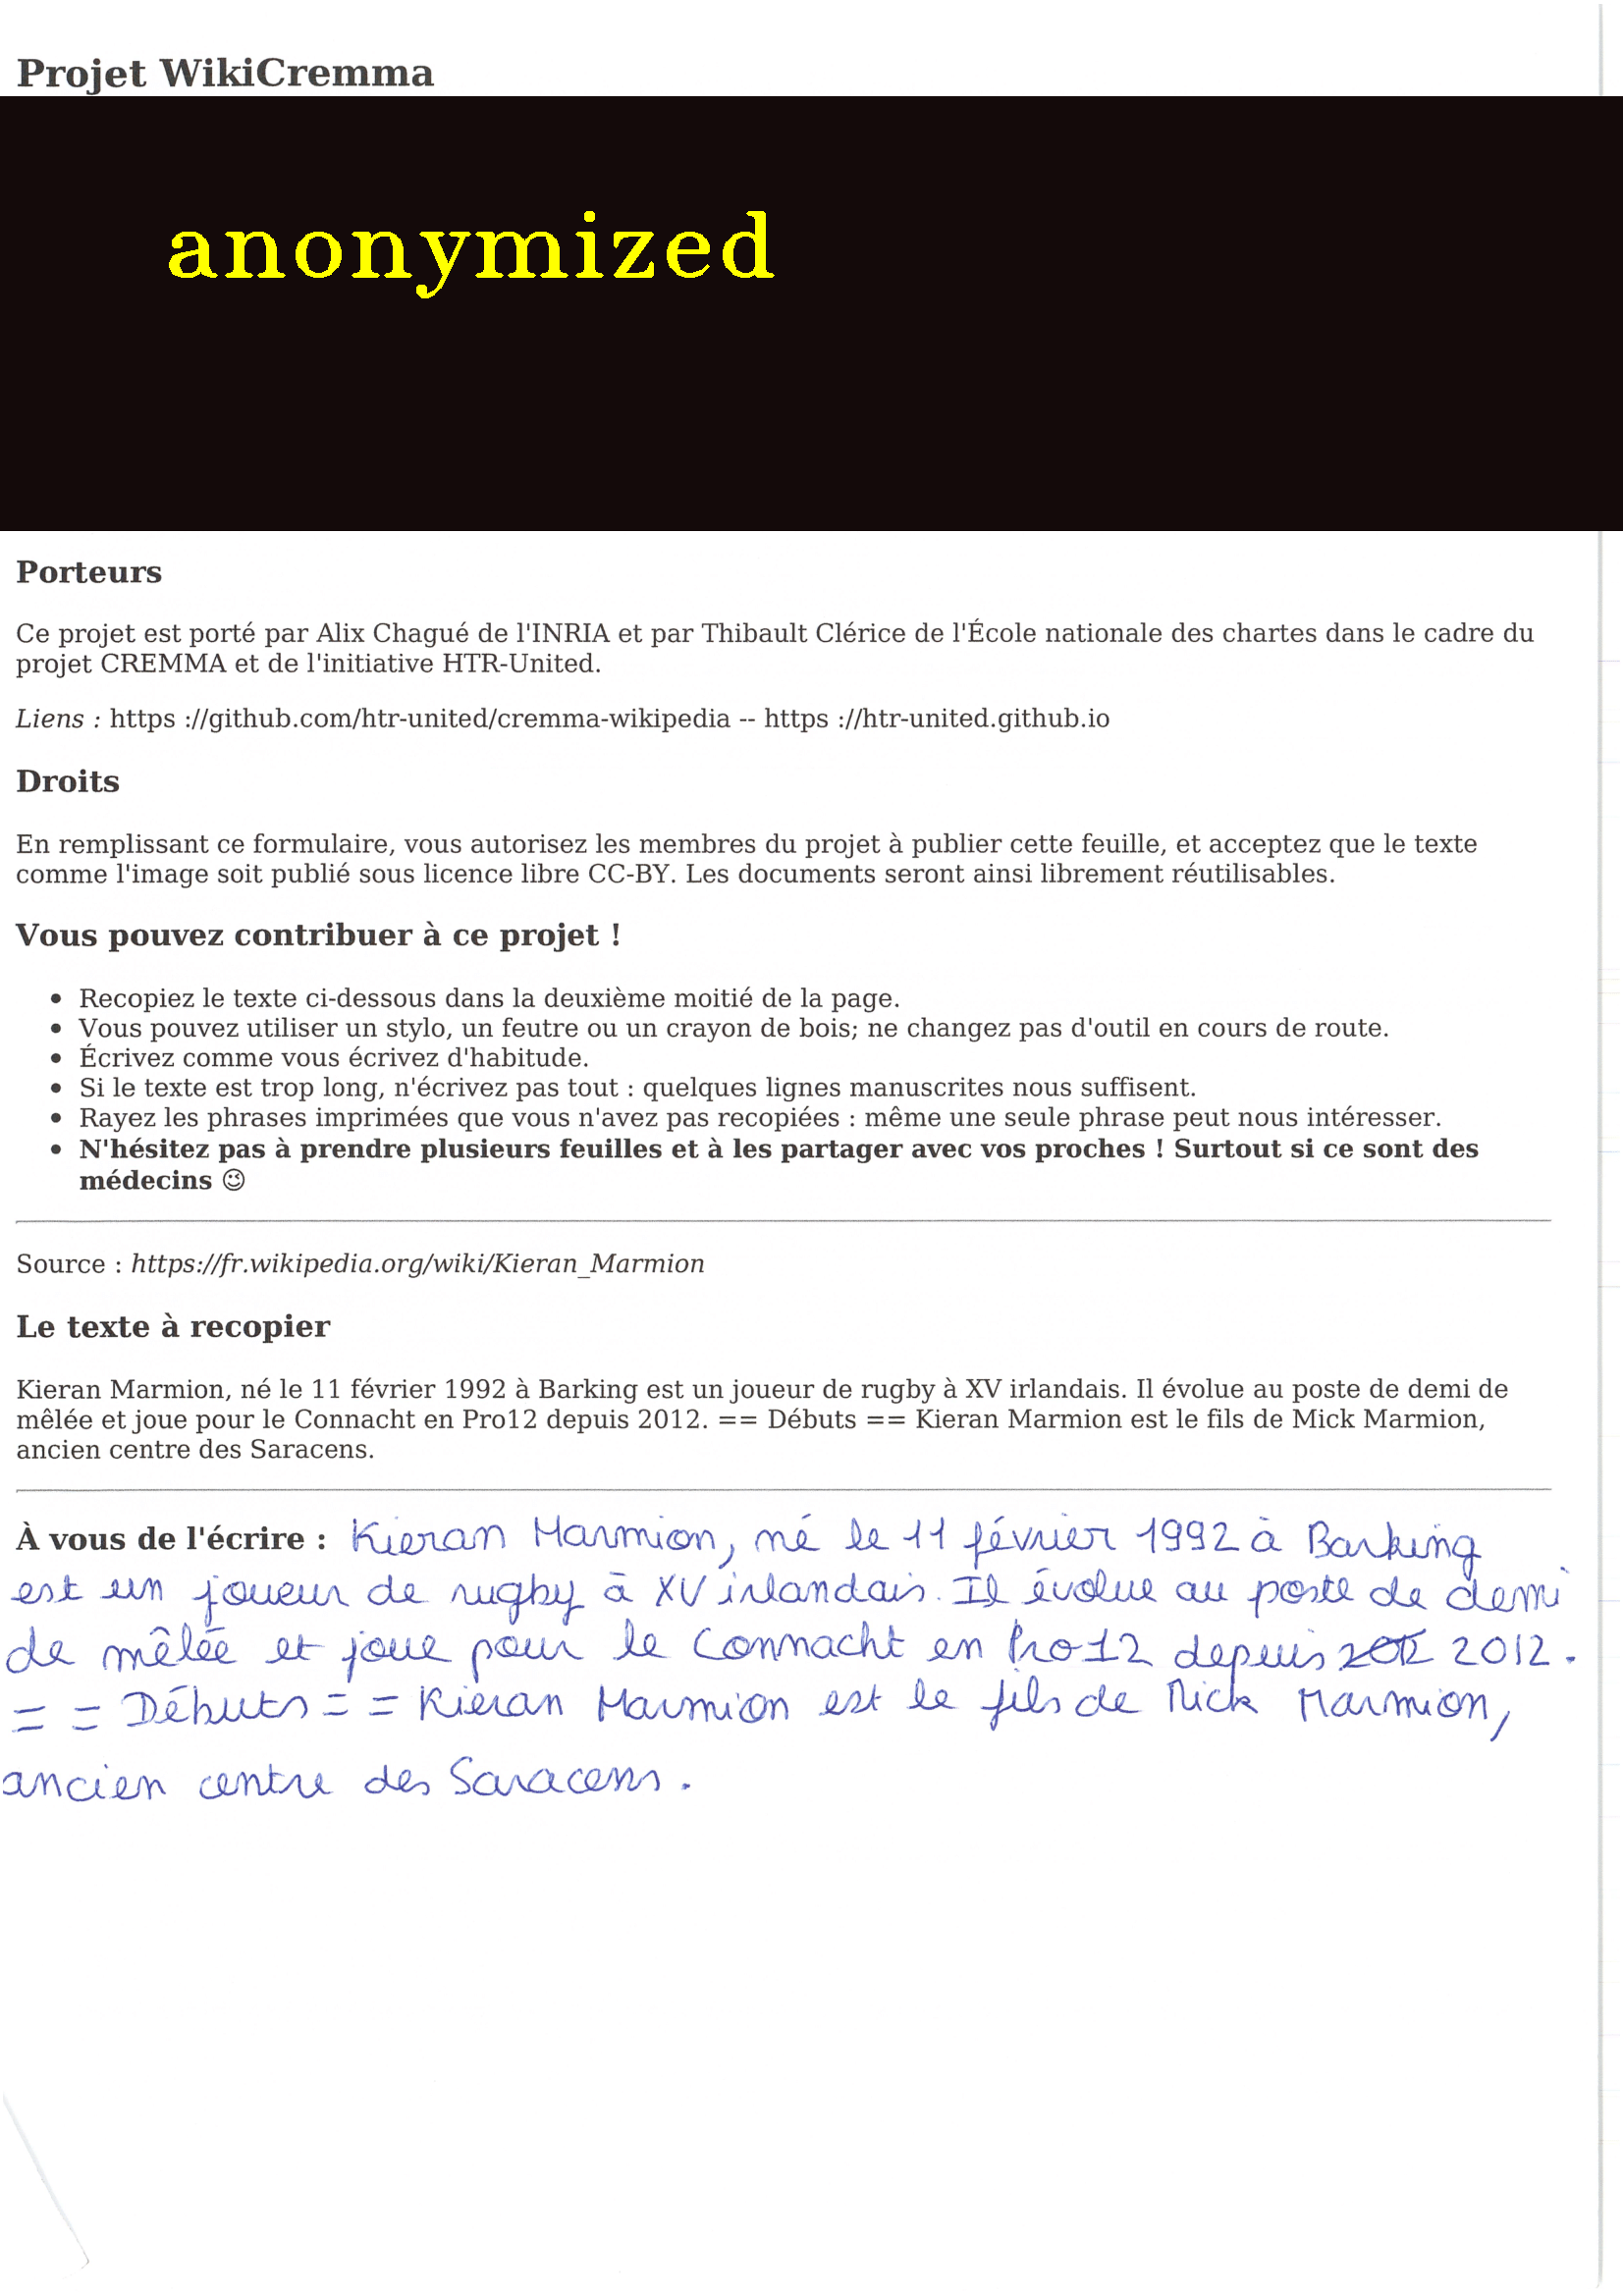 Projet WikiCremma
anonymized
Porteurs
Ce projet est porté par Alix Chagué de l'INRIA et par Thibault Clérice de l'École nationale des chartes dans le cadre du
projet CREMMA et de l'initiative HTR-United.
Liens : https ://github.com/htr-united/cremma-wikipedia -- https ://htr-united.github.io
Droits
En remplissant ce formulaire, vous autorisez les membres du projet à publier cette feuille, et acceptez que le texte
comme l'image soit publié sous licence libre CC-BY. Les documents seront ainsi librement réutilisables.
Vous pouvez contribuer à ce projet !
• Recopiez le texte ci-dessous dans la deuxième moitié de la page.
• Vous pouvez utiliser un stylo, un feutre ou un crayon de bois; ne changez pas d'outil en cours de route.
• Écrivez comme vous écrivez d'habitude.
• Si le texte est trop long, n'écrivez pas tout : quelques lignes manuscrites nous suffisent.
• Rayez les phrases imprimées que vous n'avez pas recopiées : même une seule phrase peut nous intéresser.
• N'hésitez pas à prendre plusieurs feuilles et à les partager avec vos proches ! Surtout si ce sont des
médecins 😉
Source : https://fr.wikipedia.org/wiki/Kieran_Marmion
Le texte à recopier
Kieran Marmion, né le 11 février 1992 à Barking est un joueur de rugby à XV irlandais. Il évolue au poste de demi de
mêlée et joue pour le Connacht en Pro12 depuis 2012. == Débuts == Kieran Marmion est le fils de Mick Marmion,
ancien centre des Saracens.
À vous de l'écrire : Kieran Marmion, né le 11 février 1992 à Barking
est un joueur de rugby à XV irlandais. Il évolue au poste de demi
de mêlée et joue pour le Connacht en Pro12 depuis 2012.
= = Débuts = = Kieran Marmion est le fils de Mick Marmion,
ancien centre des Saracens.